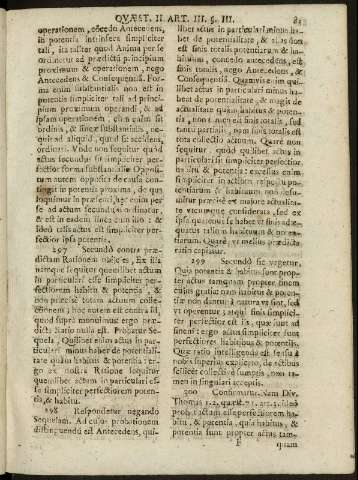 QVÆST. II. ART. III. §. III.
operationem, concedo Antecedens,
in potentia intrinsecè simpliciter
tali, ita fatetur quod Anima per se
ordinetur ad prædicta principium
proximum & operationem, nego
Antecedens & Consequentiā. For-
ma enim substantialis non est in
potentia simpliciter tali ad princi-
pium proximum operandi, & ad
ipsam operationem; cum enim sit
ordinis, & lineæ substantialis, ne-
quit ad aliquid, quod sit accidens,
ordinari. Vnde non sequitur quod
actus secundus sit simpliciter per-
fectior forma substantiali. Opposi-
tum autem apparet de causa con-
stituta in potentia proxima, de qua
loquimur in præsenti, hæc enim per
se ad actum secundum ordinatur,
& est in eadem linea cum illo: &
ideò talis actus est simpliciter per-
fectior ipsa potentia.
297 Secundò contra præ-
dictam Rationem obijcies, Ex illa
namque sequitur quemlibet actum
in particulari esse simpliciter per-
fectiorem habitu & potentia, &
non præcisè totam actuum colle-
ctionem; hoc autem est contra id,
quod supra num. diximus ergo præ-
dicta Ratio nulla est. Probatur Se-
quela, Quilibet enim actus in par-
ticulari minus habet de potentiali-
tate quàm habitus & potentia: er-
go ex nostra Ratione sequitur
quemlibet actum in particulari es-
se simpliciter perfectiorem poten-
tia, & habitu.
298 Respondetur negando
Sequelam. Ad cuius probationem
distinguendū est Antecedens, qui-
libet actus in particulari minus ha-
bet de potentialitate, & actus non
est finis totalis potentiarum & ha-
bituum, concedo Antecedens, est
finis totalis, nego Antecedens, &
Consequentiam. Quamvis enim qui-
libet actus in particulari minus ha-
beat de potentialitate, & magis de
actualitate quàm habitus & poten-
tia, non tamen est finis totalis, sed
tantum partialis, nam finis totalis est
tota collectio actuum. Quare non
sequitur, quòd quilibet actus in
particulari sit simpliciter perfectior
habitu, & potentia: excessus enim
simpliciter in actibus respectu po-
tentiarum & habituum non desu-
mitur præcisè ex maiori actualita-
te vtcumque considerata, sed ex
ipsa quatenus se habet vt finis adæ-
quatus talium habituum & poten-
tiarum. Quare, vt melius prædicta
ratio capiatur.
299 Secundò sic vrgetur,
Quia potentia & habitus sunt prop-
ter actus tamquam propter finem
cuius gratia: nam habitus & poten-
tiæ non dantur à natura vt sint, sed
vt operentur; atqui finis simpli-
citer perfectior est ijs, quæ sunt ad
finem: ergo actus simpliciter sunt
perfectiores habitibus & potentijs.
Quæ ratio intelligenda est sensu à
nobis superius explicito, de actibus
scilicet collectivè sumptis, non ta-
men in singulari acceptis.
300 Confirmatur. Nam Div.
Thomas 1.2. quæst. 71. art. 3. ideò
probat actum esse perfectiorem ha-
bitu, & potentia, quia habitus, &
potentia sunt propter actus tam-
F
quam